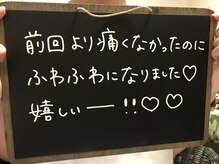 前回より痛くなかったのに
ふわふわになりました♡
嬉しい──!!♡♡